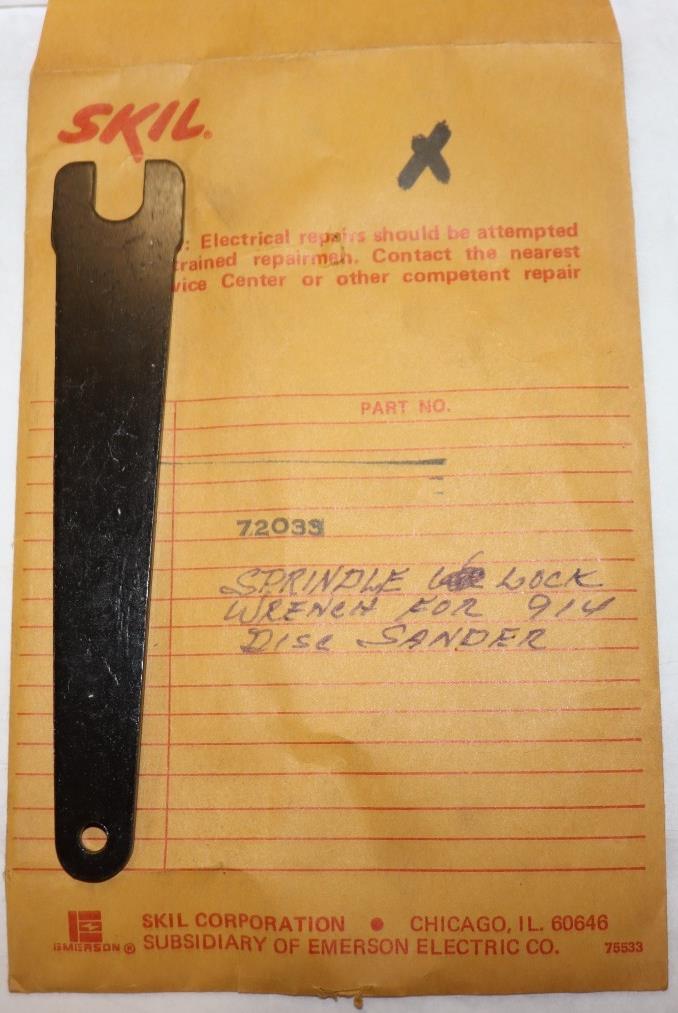 SKIL®
X
: Electrical repairs should be attempted
trained repairmen. Contact the nearest
vice Center or other competent repair
PART NO.
72033
SPRINDLE LOCK
WRENCH FOR 914
DISC SANDER
E
EMERSON®
SKIL CORPORATION • CHICAGO, IL. 60646
SUBSIDIARY OF EMERSON ELECTRIC CO.
75533